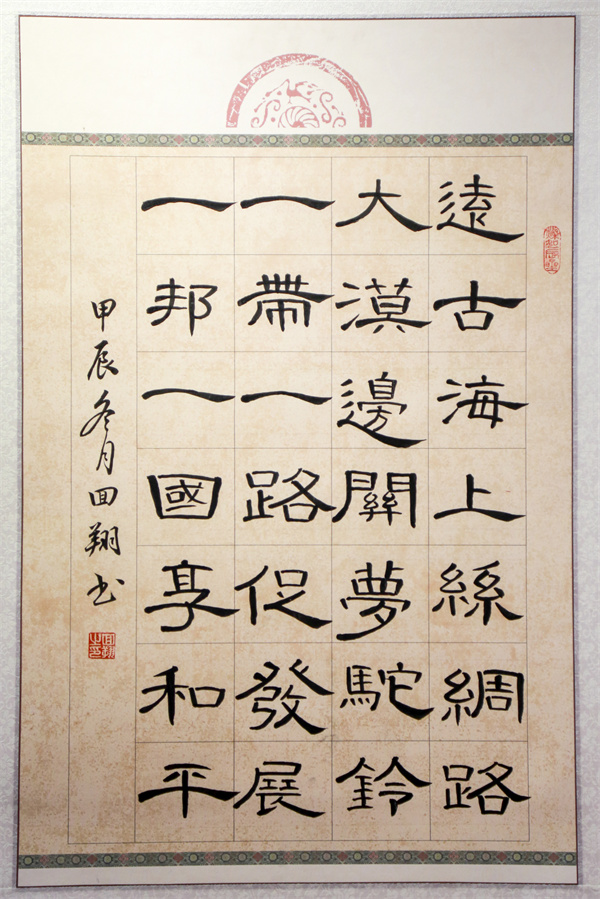 遠古海上絲綢路
大漠邊關夢駝鈴
一帶一路促發展
一邦一國享和平
甲辰冬月回翔書